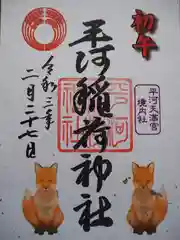 初午
平河天満宮
境内社
平河稲荷神社
令和三年
二月二十七日